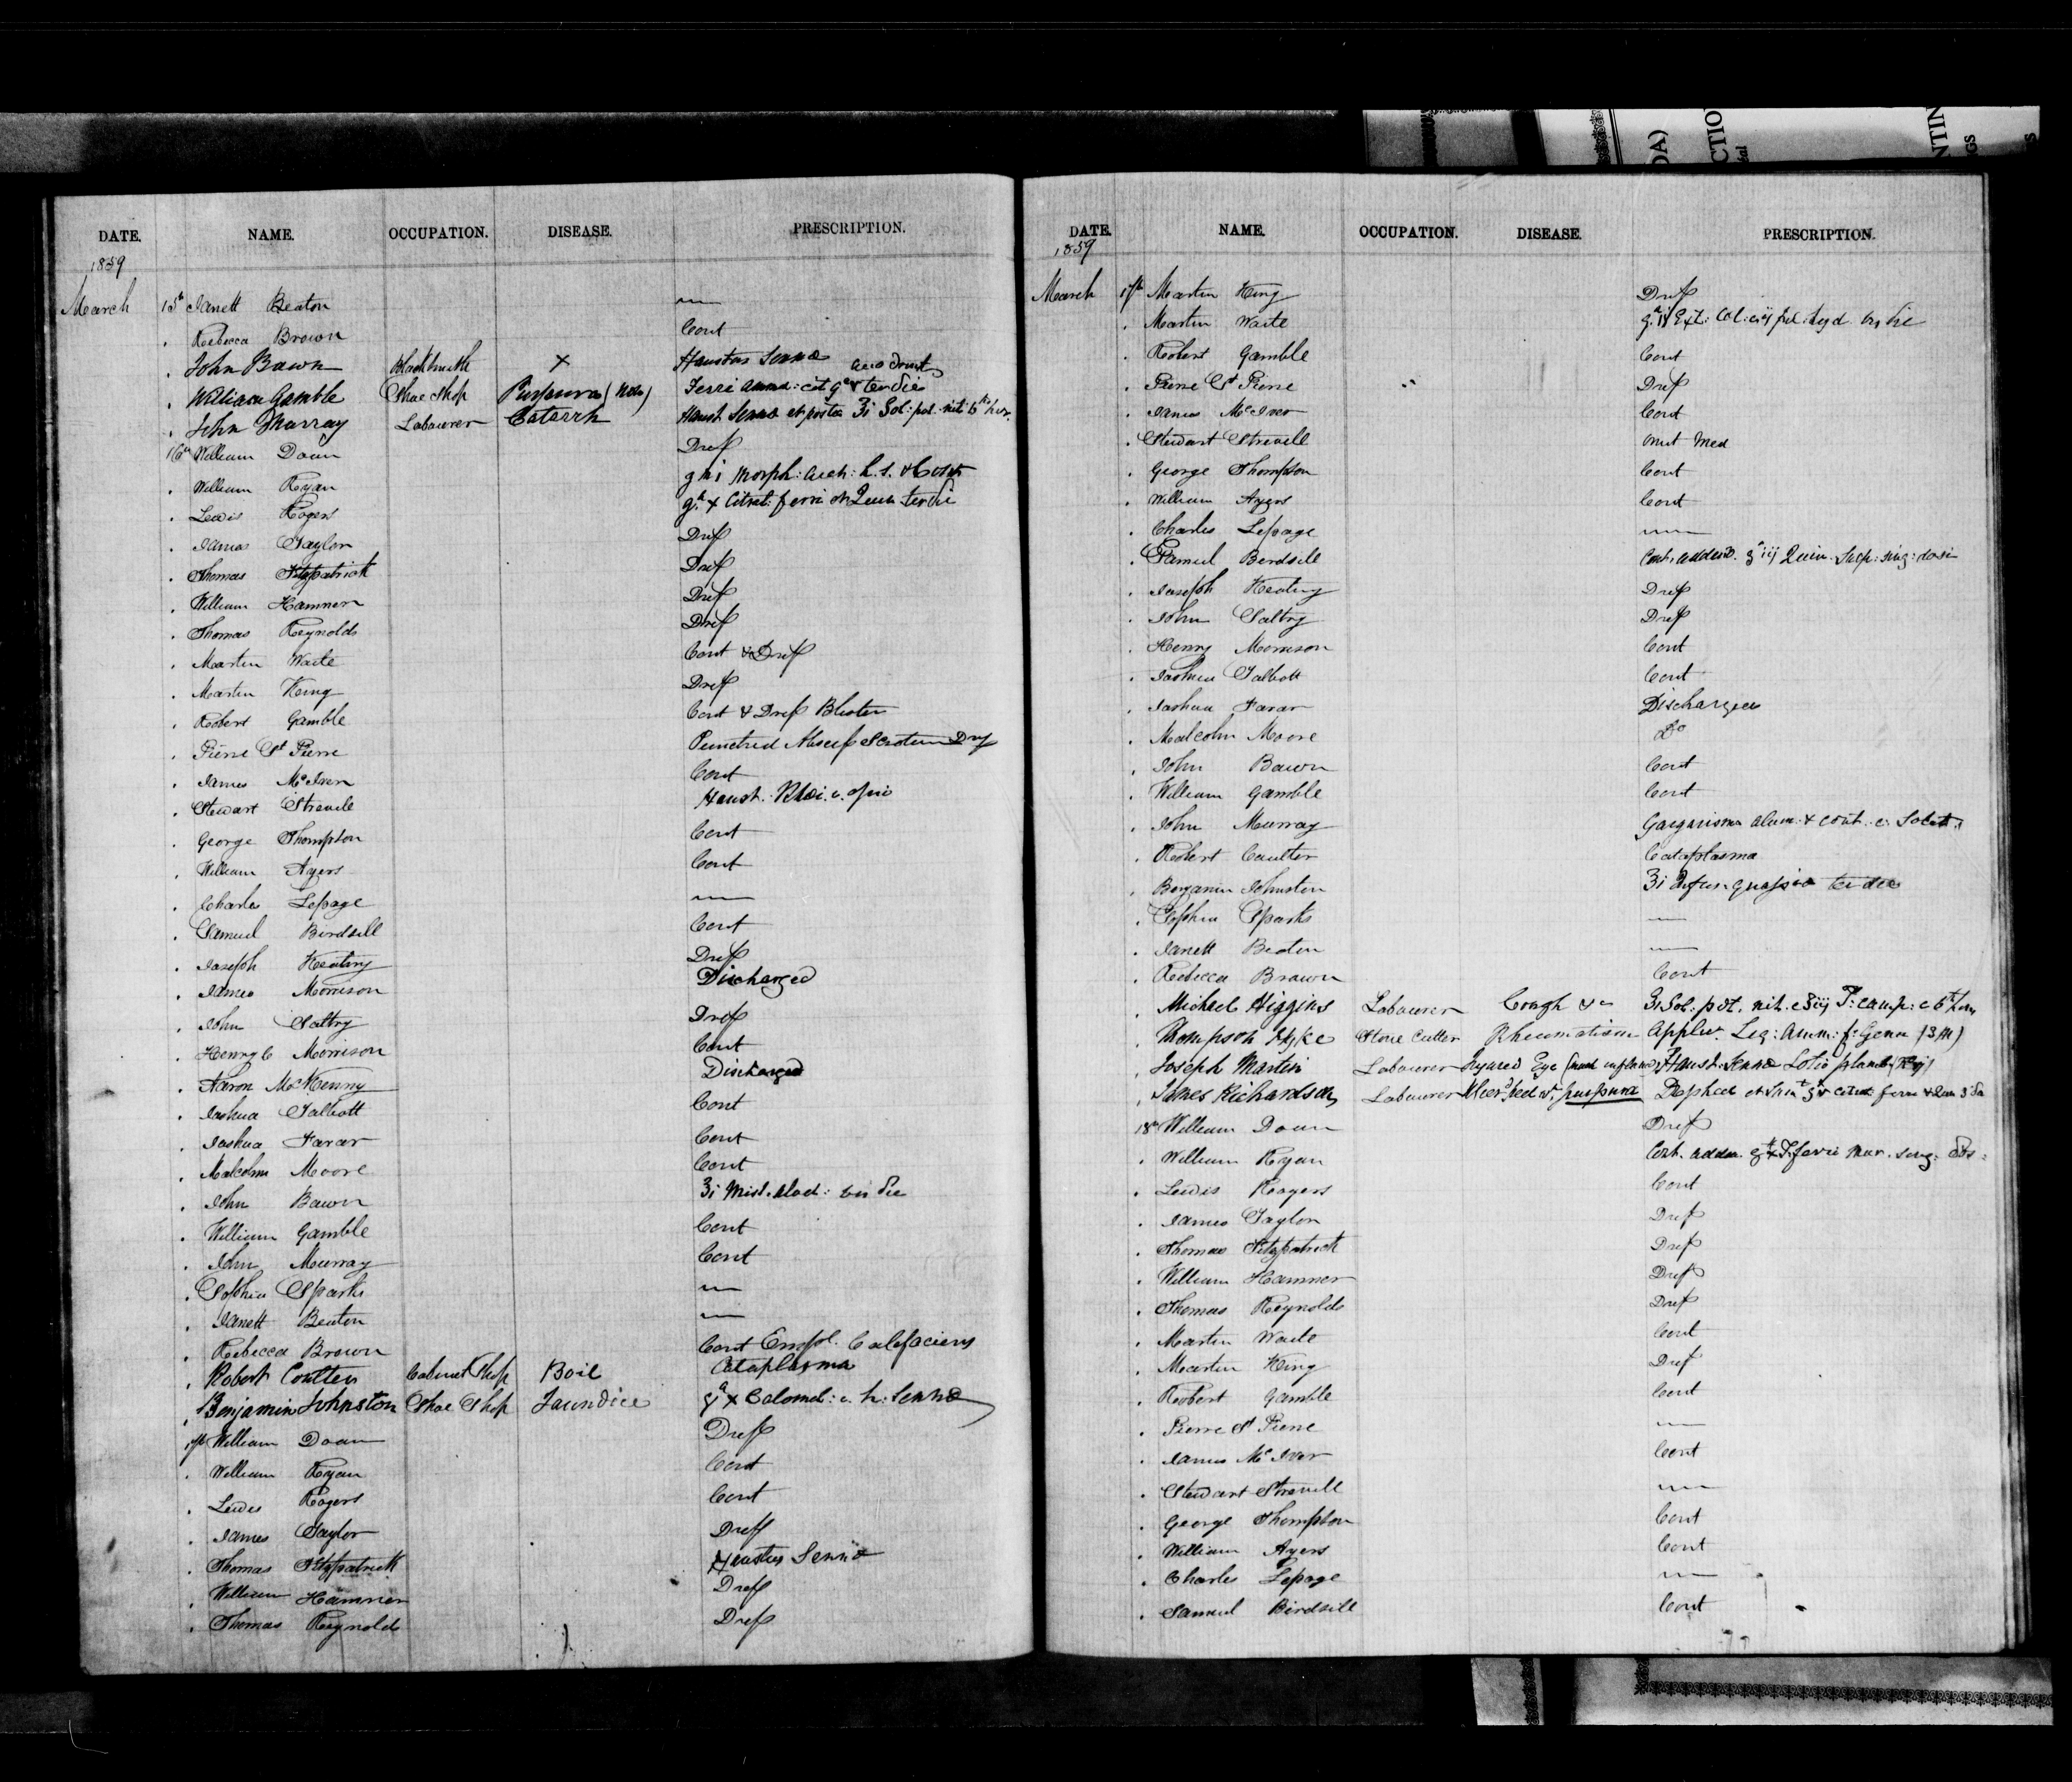 DATE. NAME. OCCUPATION. DISEASE. PRESCRIPTION.
1859
March 15th Janett Beaton —
. Rebecca Brown Cont
. John Bawn Blacksmith × Haustus Sennæ
. William Gamble Shoe Shop Purpura Ferri ter die
. John Murray Labourer Catarrh Haust Sennæ et postea ʒi Sol: pot: nit: 6th hor.
16th William Doan Dress
. William Ryan gr i Morph: Acet: h.s. & Cont
. Lewis Rogers gr. x Citrat: ferri ter die
. James Taylor Dress
. Thomas Fitzpatrick Dress
. William Hamner Dress
. Thomas Reynolds Dress
. Martin Waite Cont & Dress
. Martin King Dress
. Robert Gamble Cont & Dress Blister
. Pierre St Pierre Punctured Abscess Scrotum
. James McIver Cont
. Stewart Strevell Haust. Rhei. c. opio
. George Thompson Cont
. William Ayers Cont
. Charles Lepage —
. Samuel Birdsell Cont
. Joseph Keating Dress
. James Morrison Discharged
. John Saltry Dress
. Henry C Morrison Cont
. Aaron McKenny Discharged
. Joshua Talbott Cont
. Joshua Farar Cont
. Malcolm Moore Cont
. John Bawn ʒi Mist. bis die
. William Gamble Cont
. John Murray Cont
. Sophia Sparks —
. Janett Beaton —
. Rebecca Brown Cont Empl. Calefaciens
. Robert Coulter Cabinet Shop Boil Cataplasma
. Benjamin Johnston Shoe Shop Jaundice gr x Calomel: c. h: Sennæ
17th William Doan Dress
. William Ryan Cont
. Lewis Rogers Cont
. James Taylor Dress
. Thomas Fitzpatrick Haustus Sennæ
. William Hamner Dress
. Thomas Reynolds Dress
DATE. NAME. OCCUPATION. DISEASE. PRESCRIPTION.
1859
March 17th Martin King Dress
. Martin Waite Ext: Col: pil: hyd. bis die
. Robert Gamble Cont
. Pierre St Pierre Dress
. James McIver Cont
. Stewart Strevell Omit Med
. George Thompson Cont
. William Ayers Cont
. Charles Lepage —
. Samuel Birdsell Cont. addend. gr iij Quin. Sulp: sing: dosi
. Joseph Keating Dress
. John Saltry Dress
. Henry Morrison Cont
. Joshua Talbott Cont
. Joshua Farar Discharged
. Malcolm Moore Do
. John Bawn Cont
. William Gamble Cont
. John Murray Gargarisma Alum: & cont. c.
. Robert Coulter Cataplasma
. Benjamin Johnston ʒi Infus. quassiæ ter die
. Sophia Sparks —
. Janett Beaton —
. Rebecca Brown Cont
. Michael Higgins Labourer Cough &c ʒi Sol: pot. nit. c T: camp: 6th hor
. Thompson Hyke Stone Cutter Rheumatism Liq: Amm: f: Genu
. Joseph Martin Labourer Injured Eye Haust. Sennæ Lotio plumbi
. James Richardson Labourer purpura
18th William Doan Dress
. William Ryan Cont. T. ferri Mur. sing: dos:
. Lewis Rogers Cont
. James Taylor Dress
. Thomas Fitzpatrick Dress
. William Hamner Dress
. Thomas Reynolds Dress
. Martin Waite Cont
. Martin King Dress
. Robert Gamble Cont
. Pierre St Pierre —
. James McIver Cont
. Stewart Strevell —
. George Thompson Cont
. William Ayers Cont
. Charles Lepage —
. Samuel Birdsell Cont